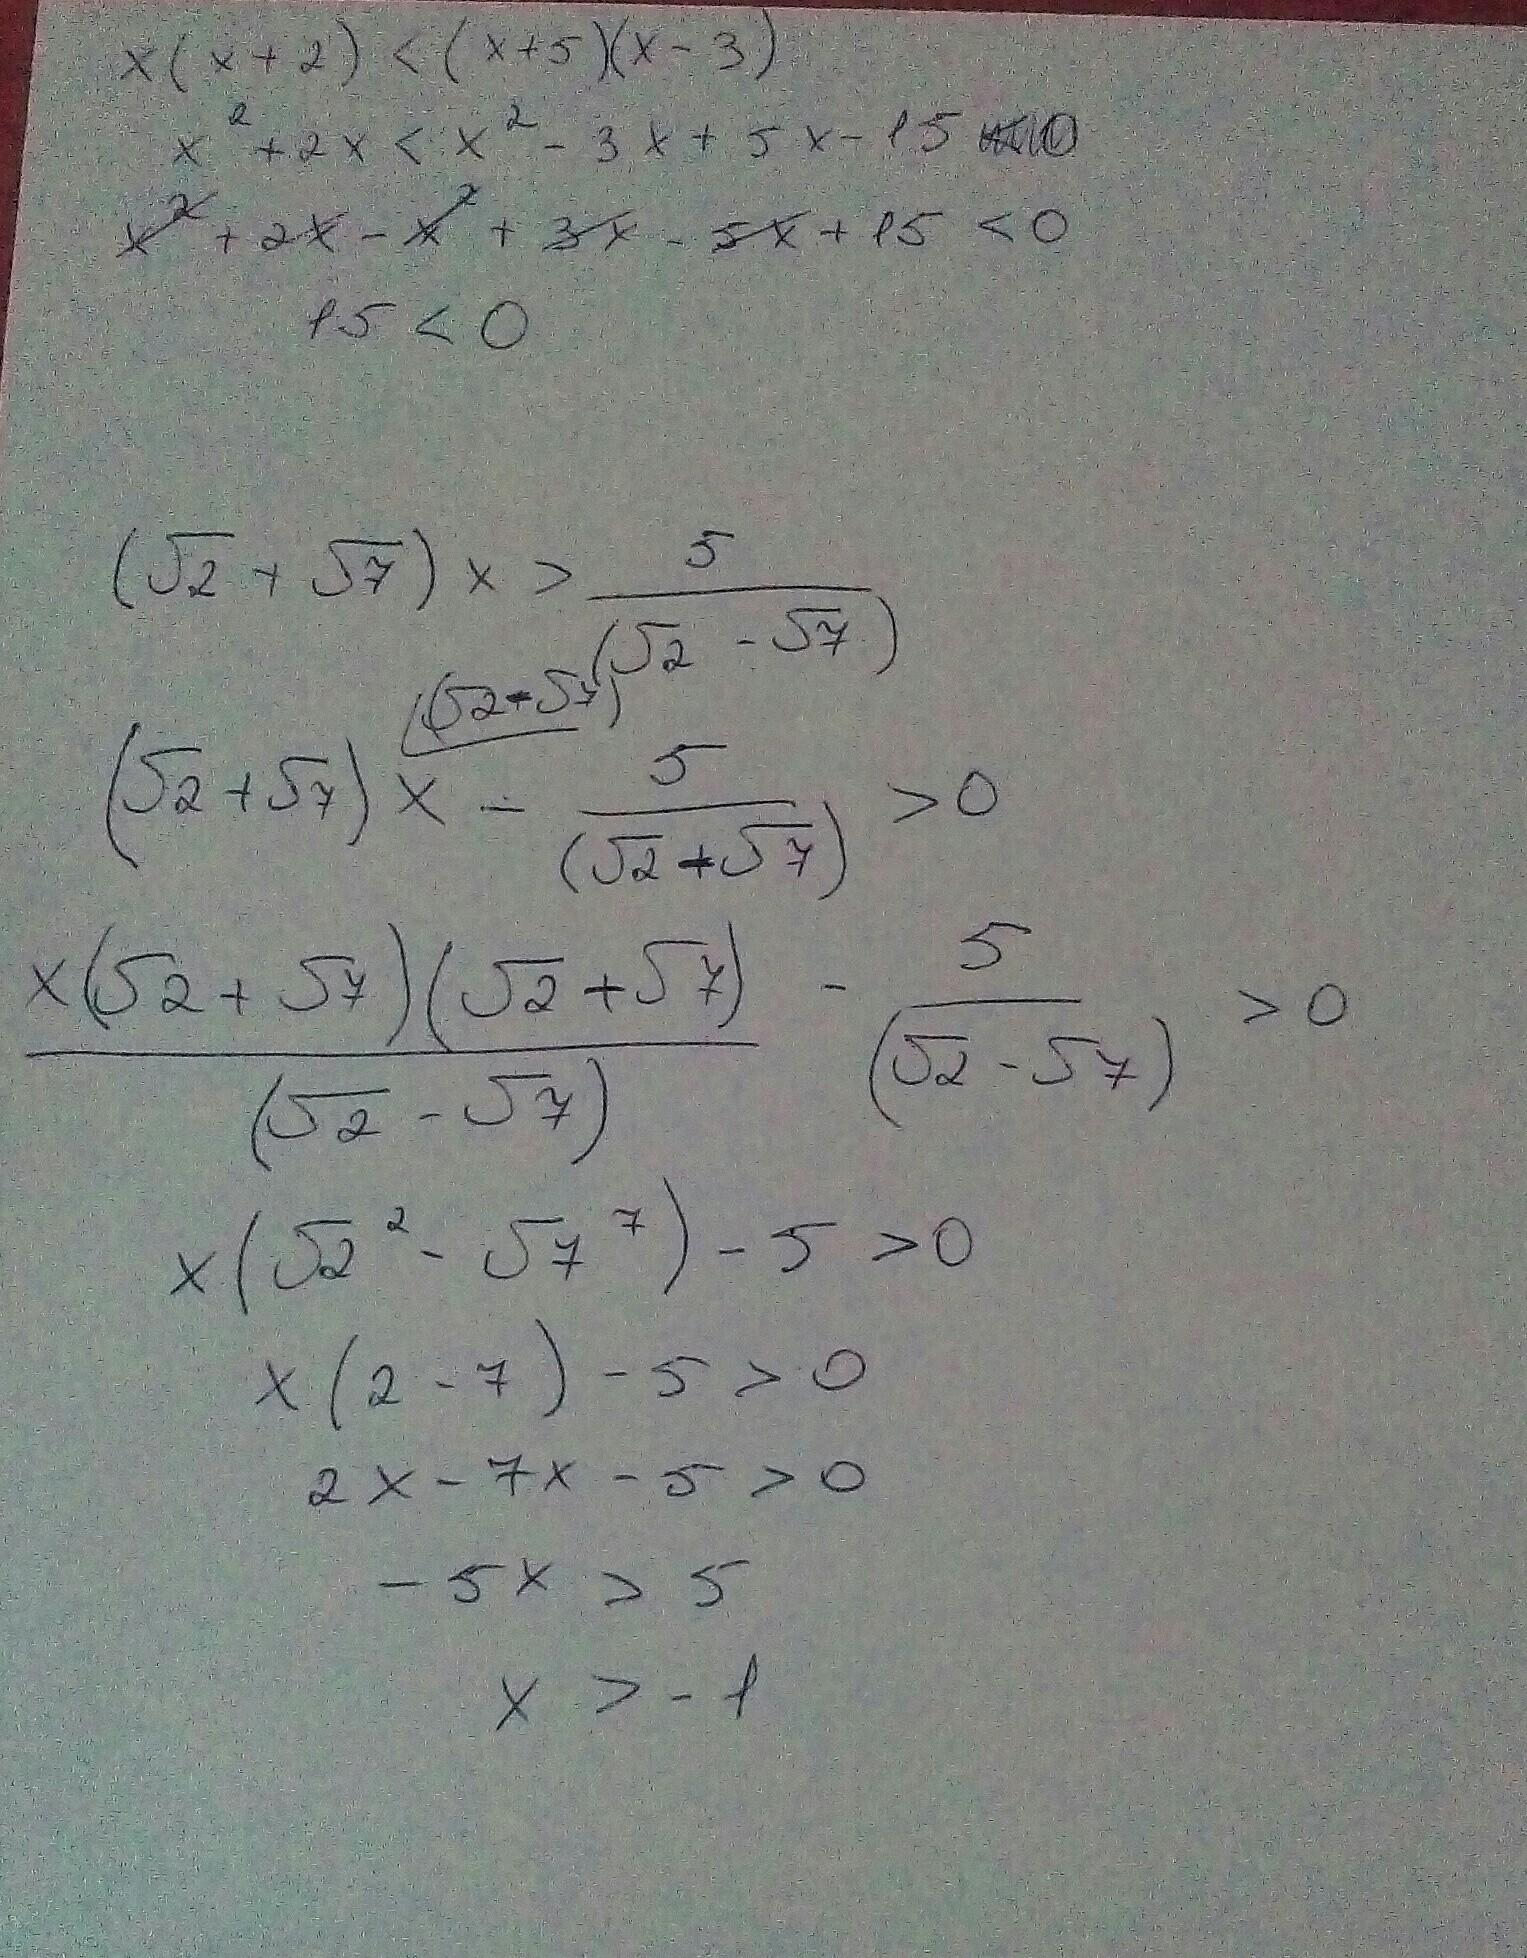 x(x+2) < (x+5)(x-3)
x² + 2x < x² - 3x + 5x - 15
x² + 2x - x² + 3x - 5x + 15 < 0
15 < 0
(√2 + √7) x > 5 / (√2 - √7)
(√2 - √7)
(√2 + √7) x - 5 / (√2 - √7) > 0
x(√2 + √7)(√2 + √7) / (√2 - √7) - 5 / (√2 - √7) > 0
x(√2² - √7⁷) - 5 > 0
x(2 - 7) - 5 > 0
2x - 7x - 5 > 0
-5x > 5
x > -1